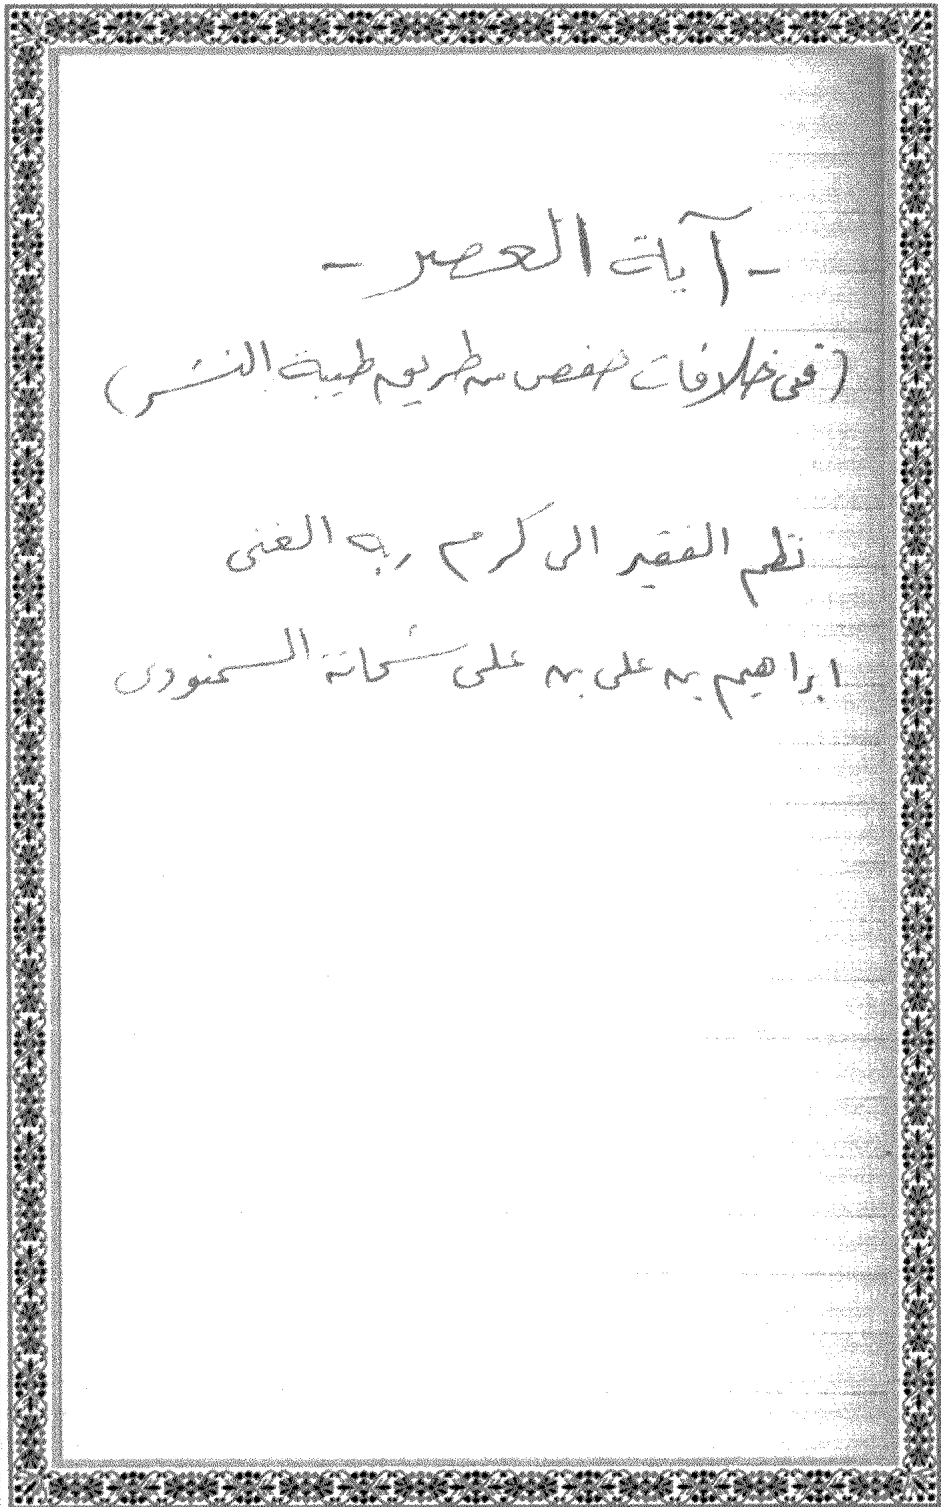 - آية العصر -
(فى خلافات حفص من طريق طيبة النشر)
نظم الفقير الى كرم ربه الغنى
ابراهيم بن على بن على شحاتة السمنودى